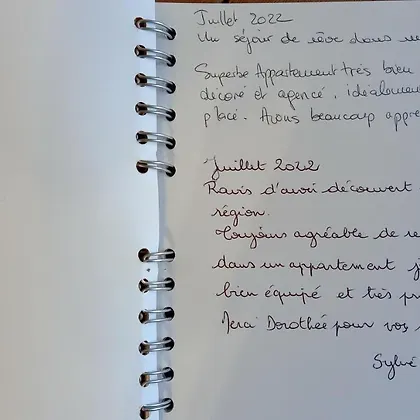 Juillet 2022
Un séjour de rêve dans
Superbe Appartement très bien
décoré et agencé, idéalement
placé. Avons beaucoup
Juillet 2022
Ravis d'avoir découvert
région.
Toujours agréable de
dans un appartement
bien équipé et très
Merci Dorothée pour vos
Sylvie